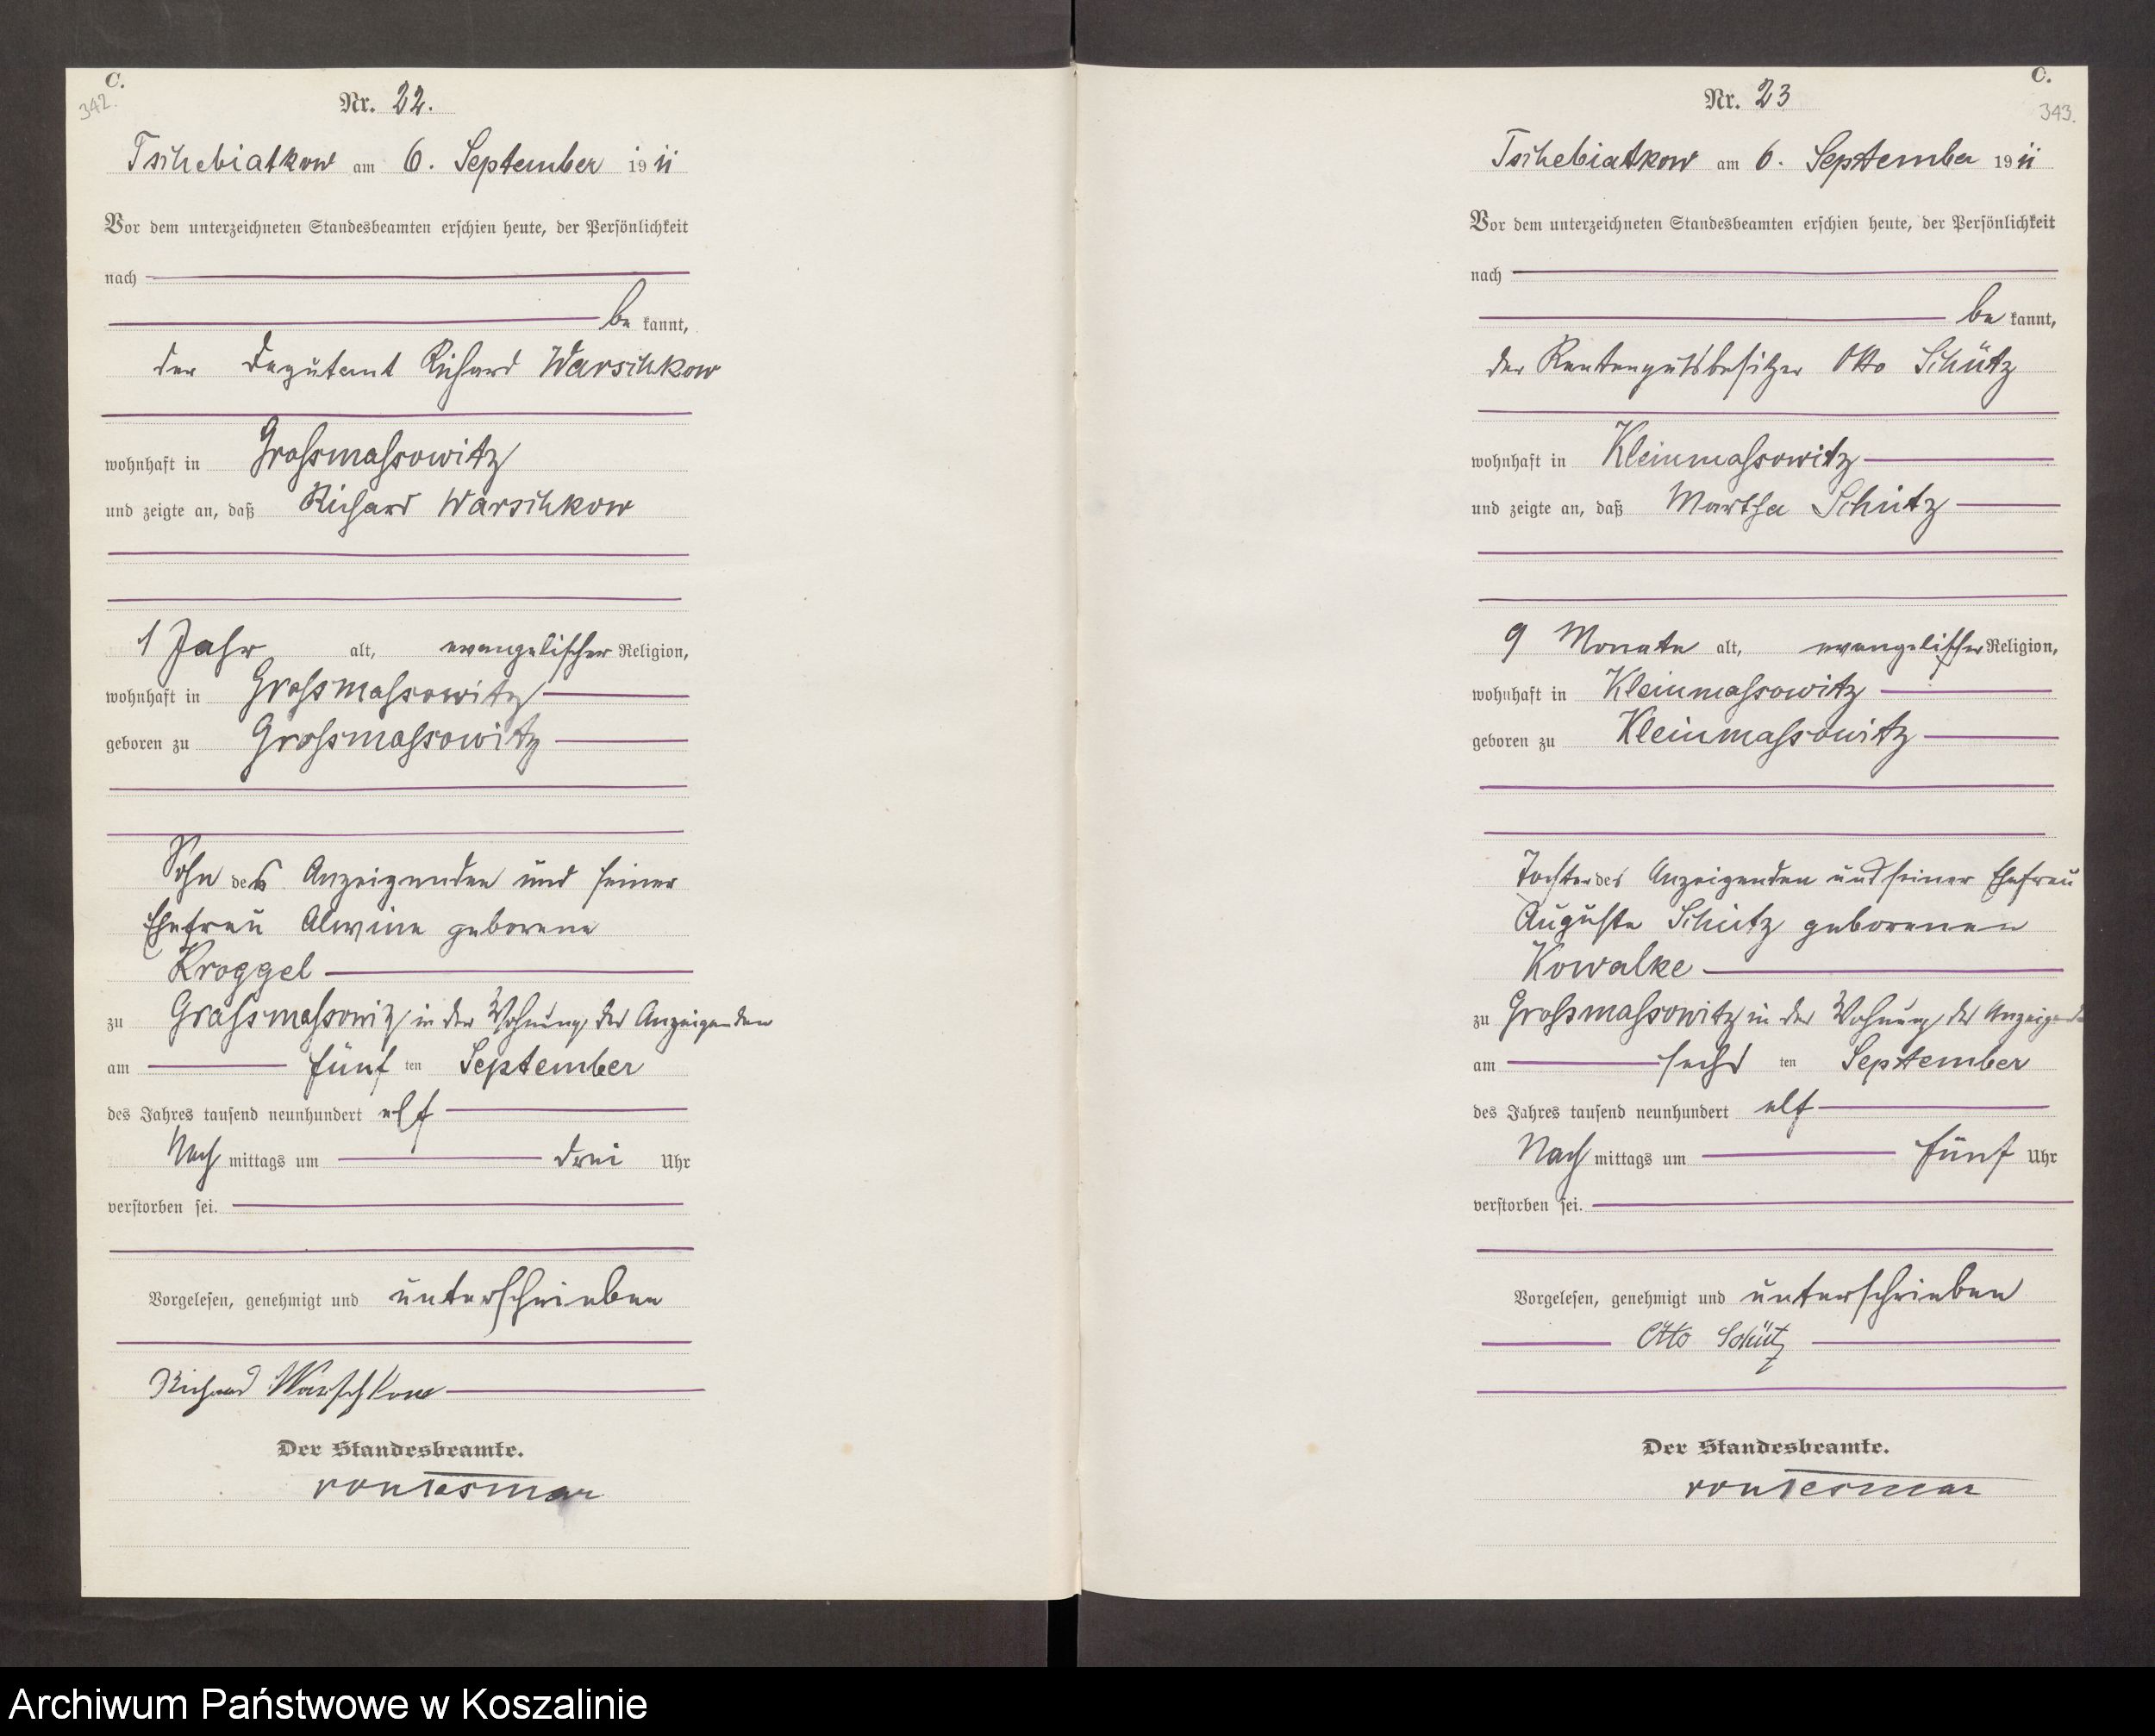 C.
342.
Nr. 22.
Tschebiatkow am 6. September 1911
Vor dem unterzeichneten Standesbeamten erschien heute, der Persönlichkeit
nach
be kannt,
der Deputant Richard Warschkow
wohnhaft in Grossmassowitz
und zeigte an, daß Richard Warschkow
1 Jahr alt, evangelischer Religion,
wohnhaft in Grossmassowitz
geboren zu Grossmassowitz
Sohn des Anzeigenden und seiner
Ehefrau Alwine geborene
Kroggel
zu Grossmassowitz in der Wohnung des Anzeigenden
am fünf ten September
des Jahres tausend neunhundert elf
Nach mittags um drei Uhr
verstorben sei.
Vorgelesen, genehmigt und unterschrieben
Richard Warschkow
Der Standesbeamte.
von Tesmar
C.
343.
Nr. 23
Tschebiatkow am 6. September 1911
Vor dem unterzeichneten Standesbeamten erschien heute, der Persönlichkeit
nach
be kannt,
der Rentengutsbesitzer Otto Schütz
wohnhaft in Kleinmassowitz
und zeigte an, daß Martha Schütz
9 Monate alt, evangelischer Religion,
wohnhaft in Kleinmassowitz
geboren zu Kleinmassowitz
Tochter des Anzeigenden und seiner Ehefrau
Auguste Schütz geborenen
Kowalke
zu Grossmassowitz in der Wohnung des Anzeigenden
am sechs ten September
des Jahres tausend neunhundert elf
Nach mittags um fünf Uhr
verstorben sei.
Vorgelesen, genehmigt und unterschrieben
Otto Schütz
Der Standesbeamte.
von Tesmar
Archiwum Państwowe w Koszalinie